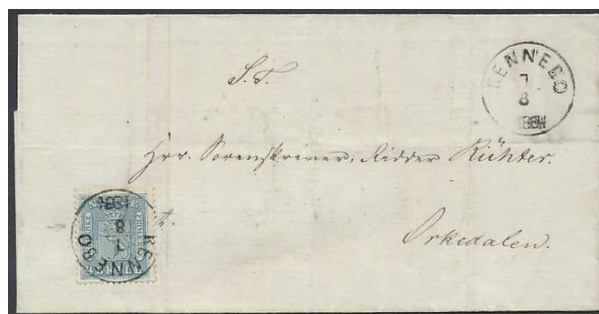 S. T.
RENNEBO
7
8
1864
Hrr. Sorenskriver, Ridder Richter.
Orkedalen.
RENNEBO
7
8
1864